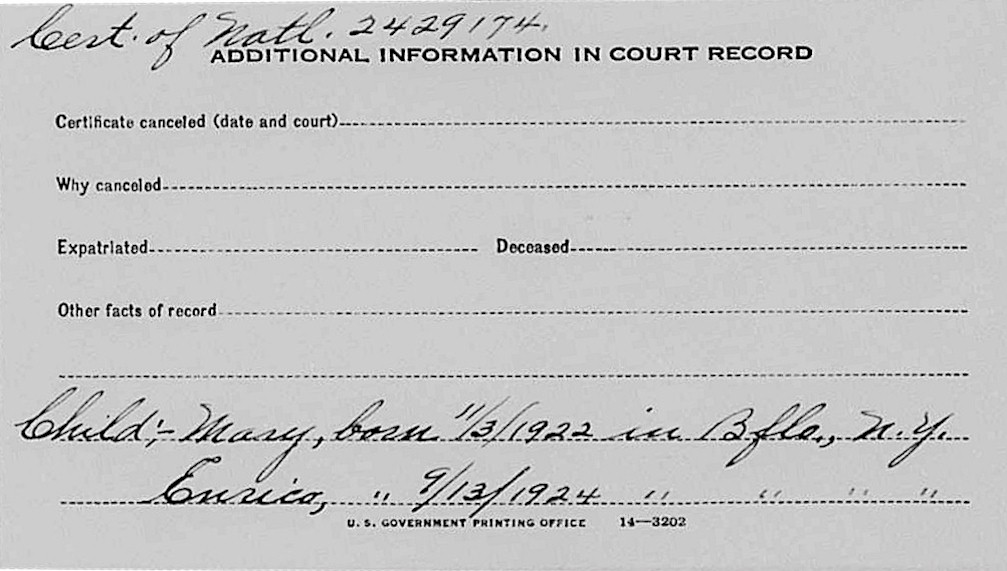 Cert. of Natl. 2429174.
ADDITIONAL INFORMATION IN COURT RECORD
Certificate canceled (date and court)
Why canceled
Expatriated Deceased
Other facts of record
Child:- Mary, born 11/3/1922 in Bflo., N.Y.
Enrico, " 9/13/1924 " " " "
U. S. GOVERNMENT PRINTING OFFICE 14—3202